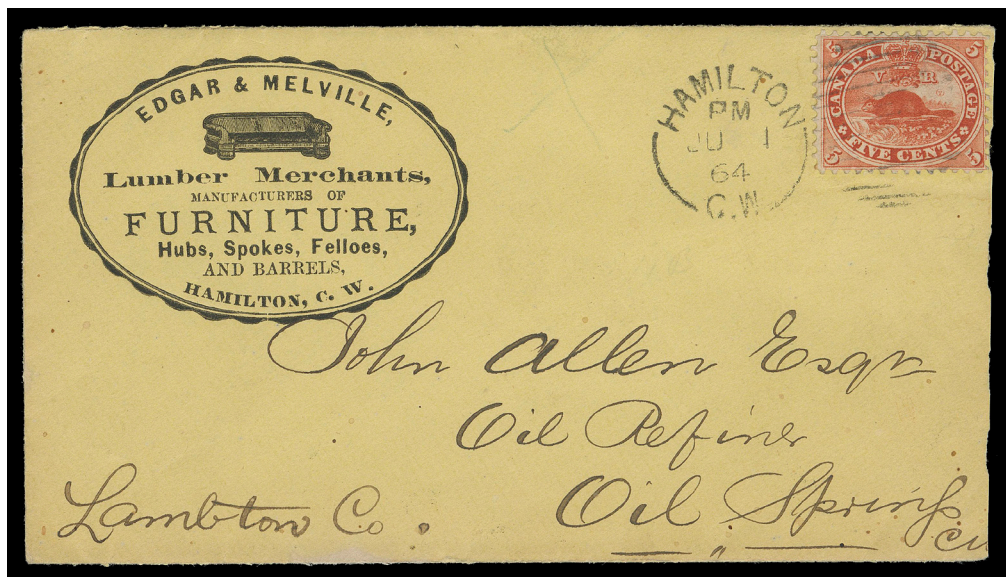 EDGAR & MELVILLE,
Lumber Merchants,
MANUFACTURERS OF
FURNITURE,
Hubs, Spokes, Felloes,
AND BARRELS,
HAMILTON, C. W.
HAMILTON
PM
JU 1
64
C.W.
5 CANADA POSTAGE 5
V R
5 FIVE CENTS 5
John Allen Esqr
Oil Refiner
Oil Springs
C W
Lambton Co.